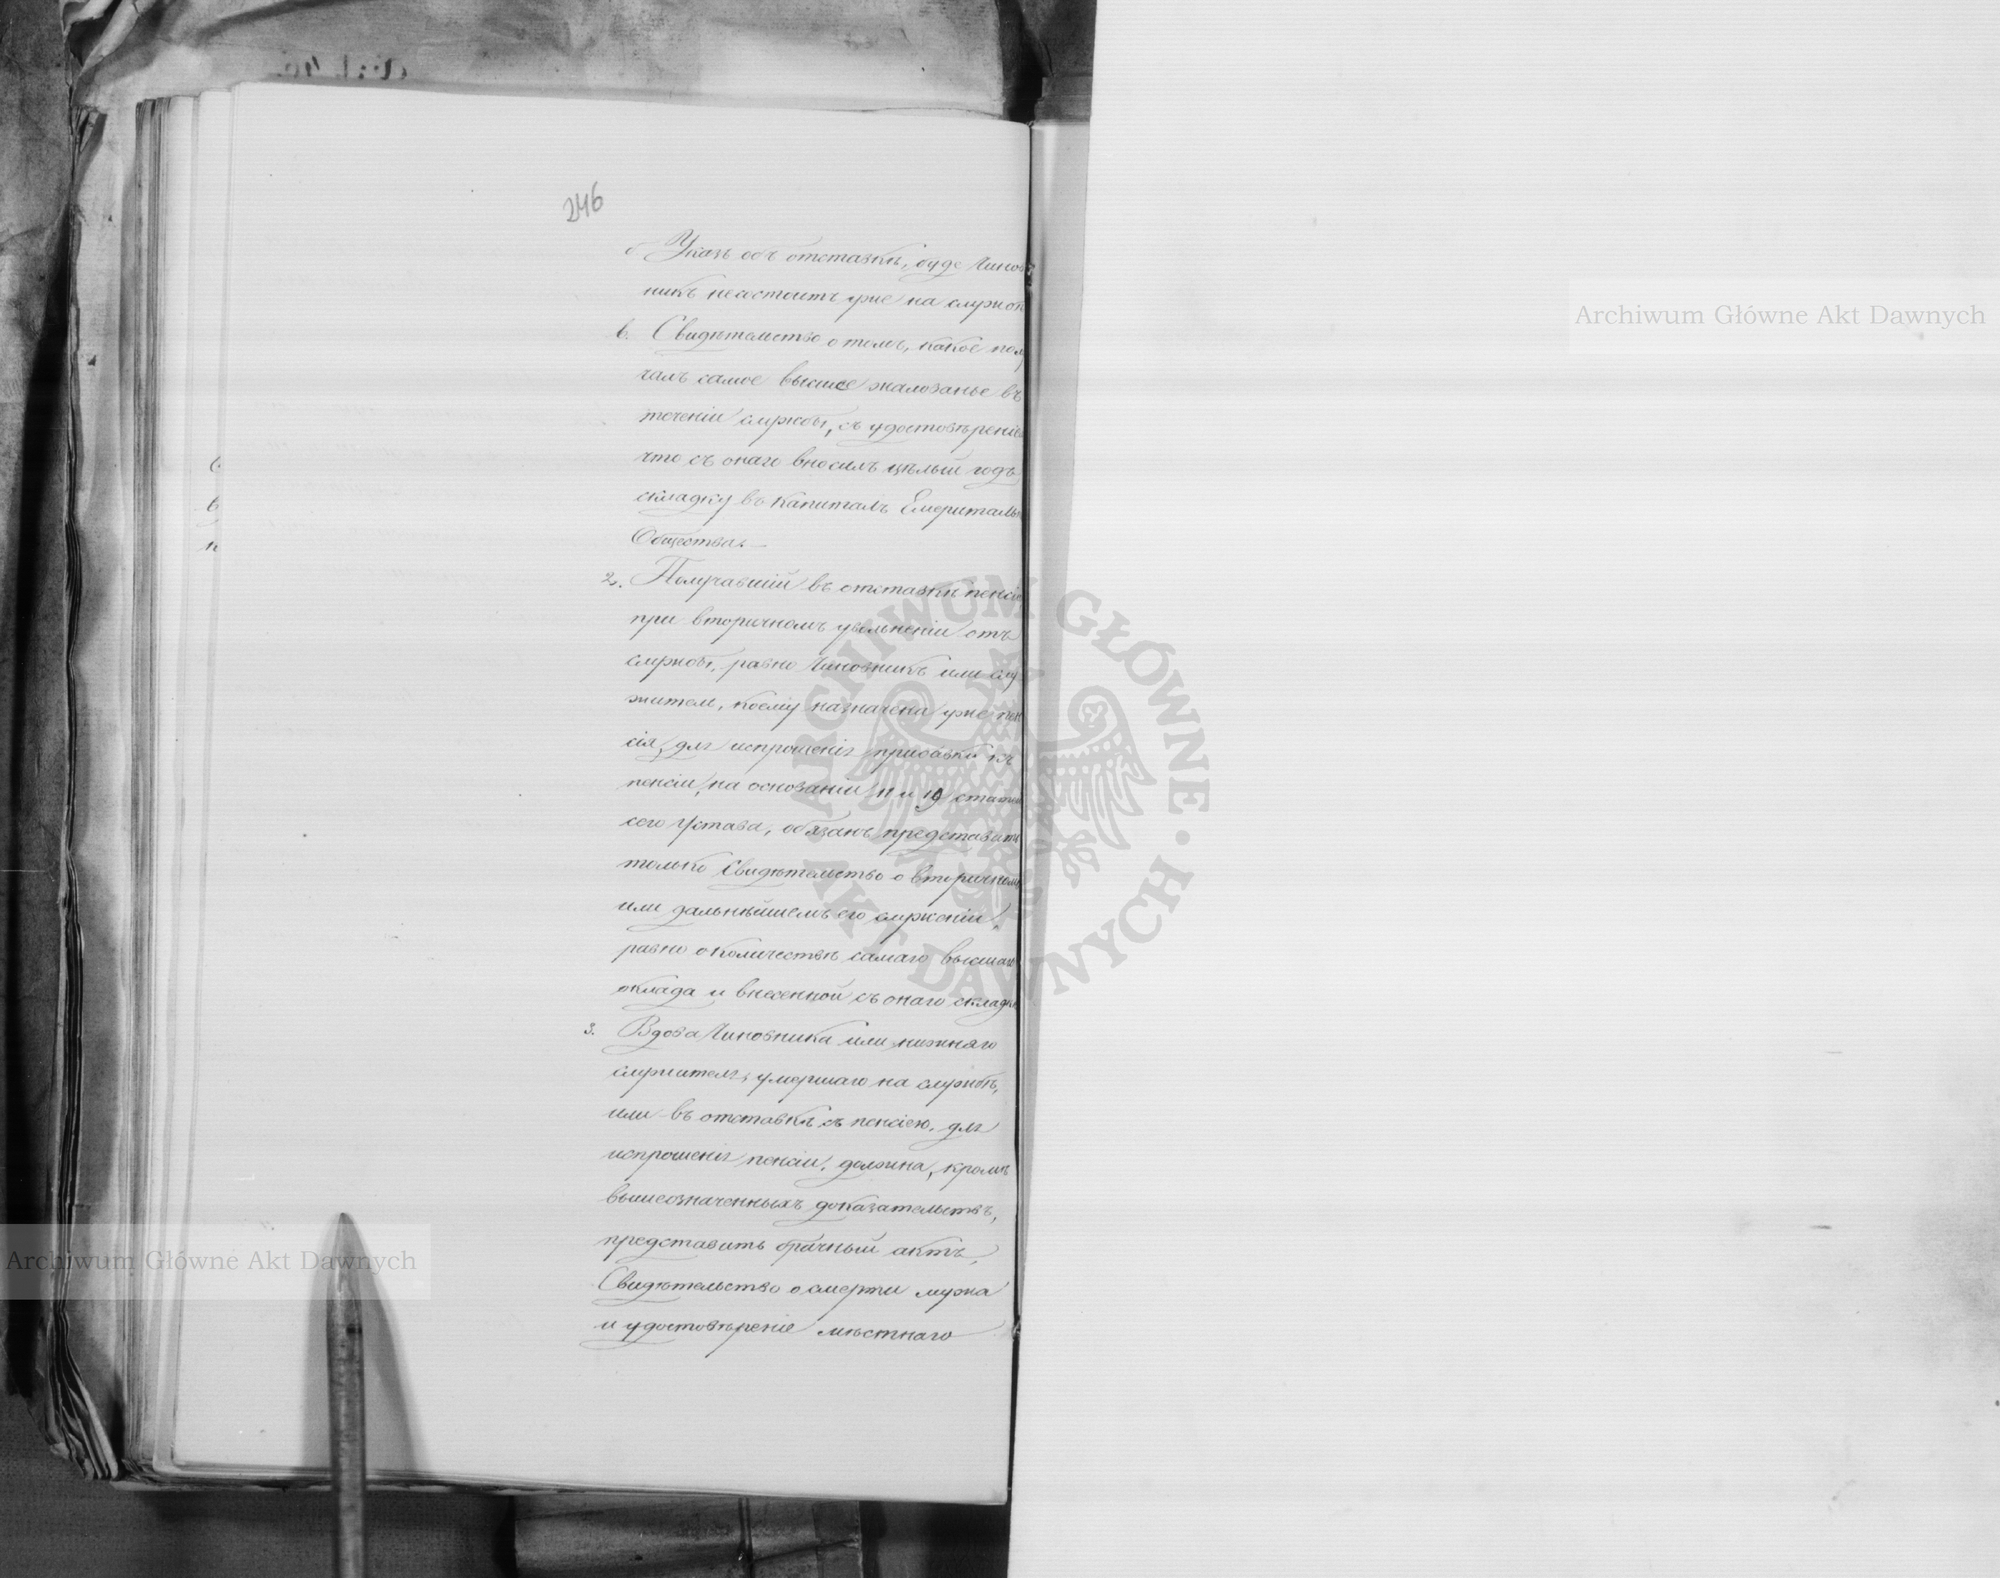 246
б Указъ объ отставкѣ, буде Чинов-
никъ несостоитъ уже на службѣ
в. Свидѣтельство о томъ, какое полу
чалъ самое высшее жалованье въ
теченіи службы, съ удостовѣреніем
что съ онаго вносилъ цѣлый годъ
складку въ Капиталъ Емериталь
Общества.
2. Получавшій въ отставкѣ пенсію
при вторичномъ увольненіи отъ
службы, равно Чиновникъ или слу
житель, коему назначена уже пен
сія, для испрошенія прибавки къ
пенсіи, на основаніи 11 и 19 статей
сего Устава, обязанъ представить
только Свидѣтельство о вторичномъ
или дальнѣйшемъ его служеніи,
равно о количествѣ самаго высшаго
оклада и внесенной съ онаго складки
3. Вдова Чиновника или нижняго
служителя, умершаго на службѣ,
или въ отставкѣ съ пенсіею, для
испрошенія пенсіи, должна, кромѣ
вышеозначенныхъ доказательствъ,
представить брачный актъ,
Свидѣтельство о смерти мужа
и удостовѣреніе мѣстнаго
Archiwum Główne Akt Dawnych
Archiwum Główne Akt Dawnych
ARCHIWUM GŁÓWNE · AKT DAWNYCH ·